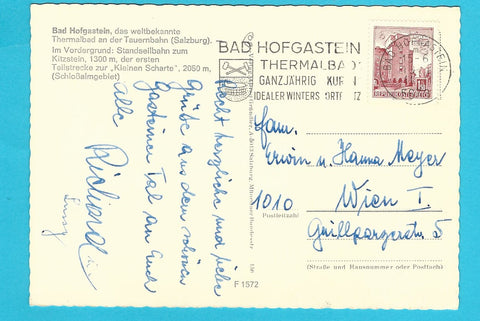 Bad Hofgastein, das weltbekannte
Thermalbad an der Tauernbahn (Salzburg).
Im Vordergrund: Standseilbahn zum
Kitzstein, 1300 m, der ersten
Teilstrecke zur „Kleinen Scharte", 2050 m,
(Schloßalmgebiet)
BAD HOFGASTEIN
THERMALBAD
GANZJÄHRIG KUR
IDEALER WINTERSPORTPLATZ
BAD HOFGASTEIN
REPUBLIK ÖSTERREICH
Recht herzliche und liebe
Grüße aus dem schönen
Gasteiner Tal an Euch
alle Richard
Fam.
Erwin u. Hanna Mayer
1010 Wien I.
Postleitzahl
Grillparzerstr. 5
(Straße und Hausnummer oder Postfach)
F 1572